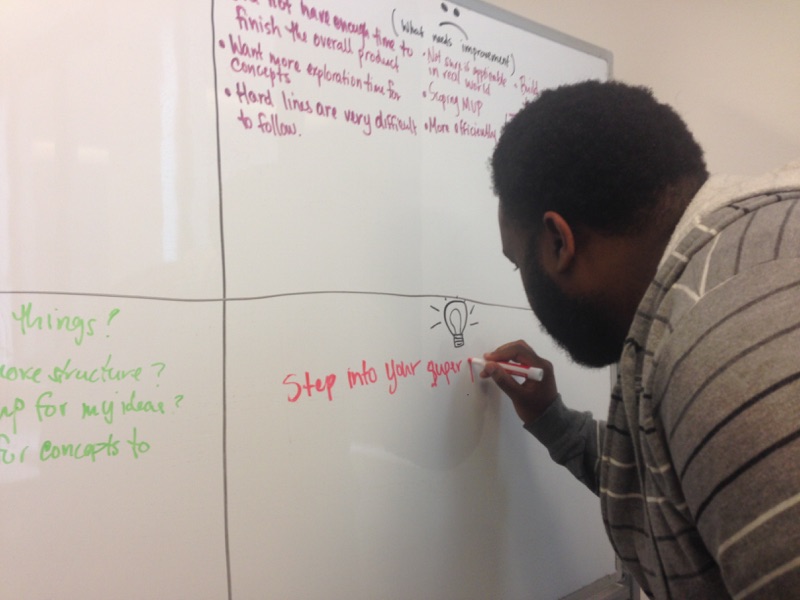 not have enough time to
finish the overall product
concepts
• Want more exploration time for
• Hard lines are very difficult
to follow.
(What needs improvement)
• Not sure if applicable
in real world
• Scoping MVP
• More efficiently
• Build
things?
more structure?
up for my ideas?
for concepts to
Step into your super